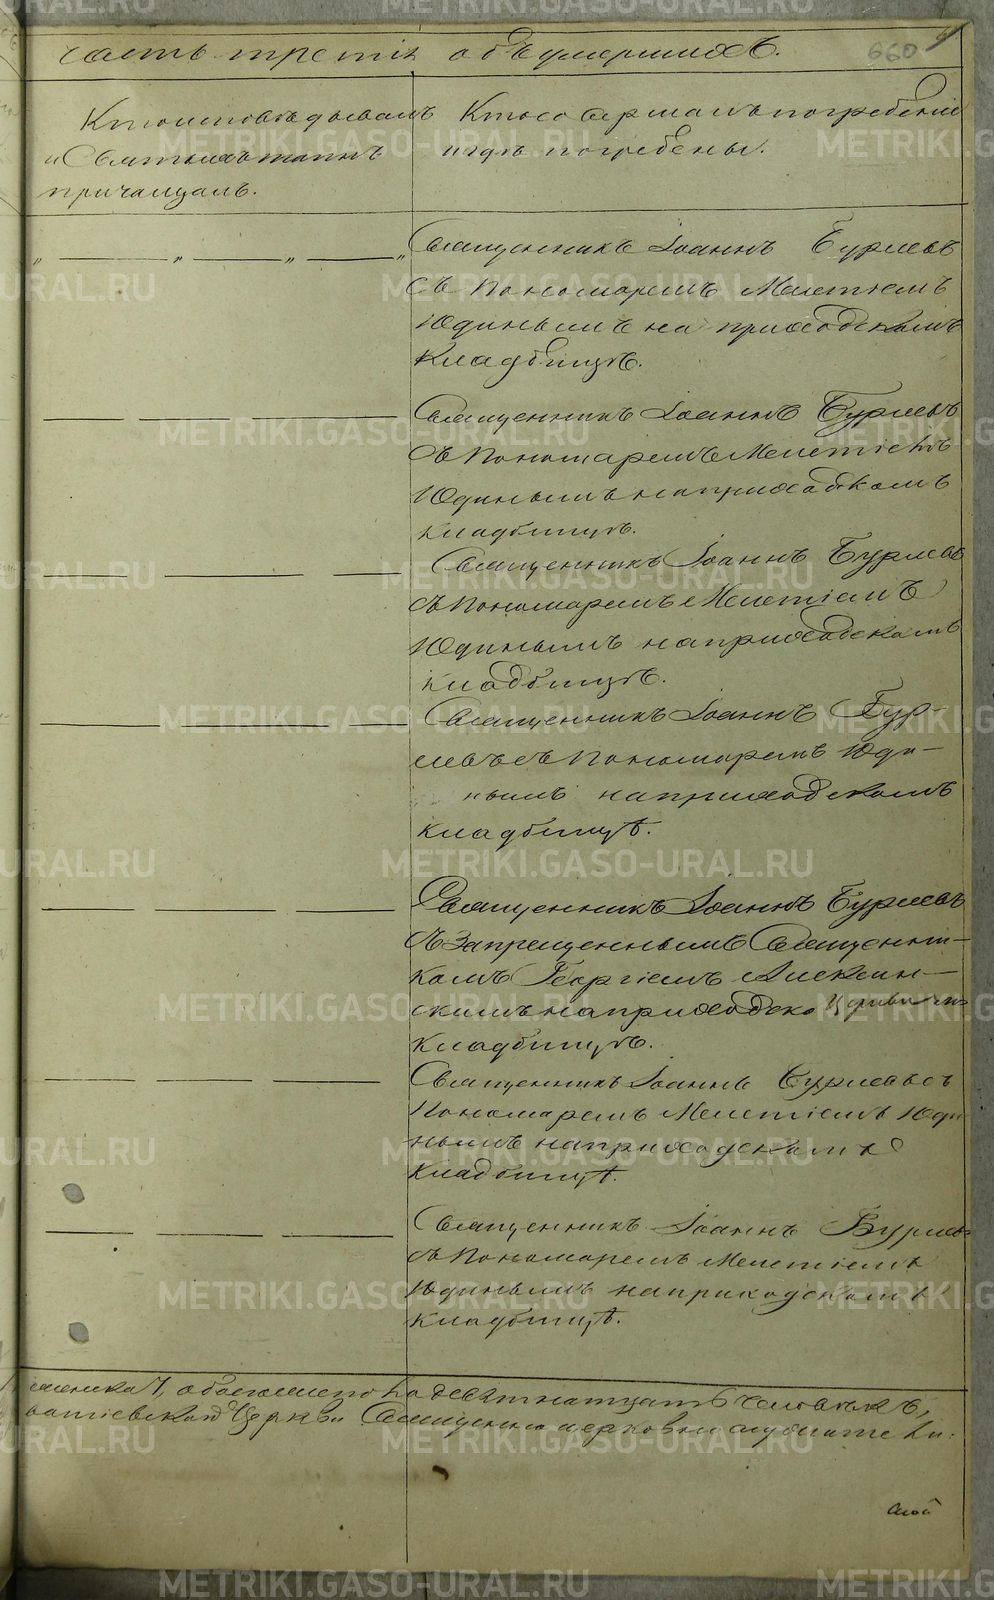 часть третія объ умершихъ.
660
Кто исповѣдывалъ
и Святыхъ таинъ
причащалъ.
Кто совершалъ погребеніе
и гдѣ погребены.
Священникъ Іоаннъ Бурлевъ
съ Пономаремъ Мелетіемъ
Юдинымъ на приходскомъ
Кладбищѣ.
Священникъ Іоаннъ Бурлевъ
съ Пономаремъ Мелетіемъ
Юдинымъ на приходскомъ
кладбищѣ.
Священникъ Іоаннъ Бурлевъ
съ Пономаремъ Мелетіемъ
Юдинымъ на приходскомъ
кладбищѣ.
Священникъ Іоаннъ Бур-
левъ съ Пономаремъ Юди-
нымъ на приходскомъ
кладбищѣ.
Священникъ Іоаннъ Бурлевъ
съ Запрещеннымъ Священни-
комъ Георгіемъ Алексин-
скимъ на приходско
Кладбищѣ.
Священникъ Іоаннъ Бурлевъ съ
Пономаремъ Мелетіемъ Юди
нымъ на приходскомъ
кладбищѣ.
Священникъ Іоаннъ Бурлевъ
съ Пономаремъ Мелетіемъ
Юдинымъ на приходскомъ
кладбищѣ.
обоего пола десятнатцать человѣкъ,
Церкви Священно и церковнослужители
METRIKI.GASO-URAL.RU